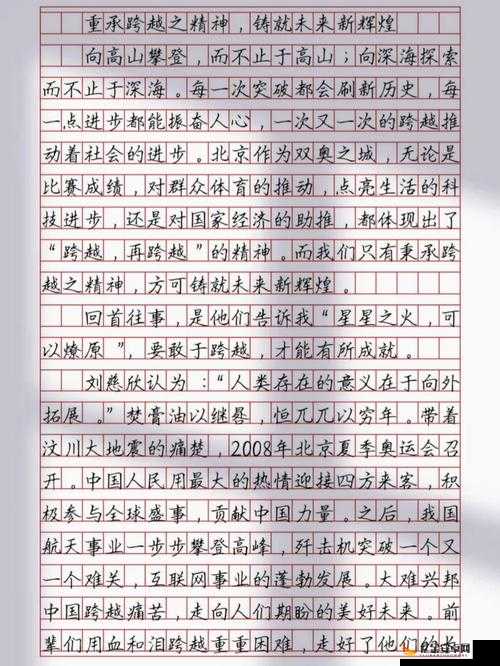 重承跨越之精神，铸就未来新辉煌
向高山攀登，而不止于高山；向深海探索
而不止于深海。每一次突破都会刷新历史，每
一点进步都能振奋人心，一次又一次的跨越推
动着社会的进步。北京作为双奥之城，无论是
比赛成绩，对群众体育的推动，点亮生活的科
技进步，还是对国家经济的助推，都体现出了
“跨越，再跨越”的精神。而我们只有秉承跨
越之精神，方可铸就未来新辉煌。
回首往事，是他们告诉我“星星之火，可
以燎原”，要敢于跨越，才能有所成就。
刘慈欣认为：“人类存在的意义在于向外
拓展。”焚膏油以继晷，恒兀兀以穷年。带着
汶川大地震的痛楚，2008年北京夏季奥运会召
开。中国人民用最大的热情迎接四方来客，积
极参与全球盛事，贡献中国力量。之后，我国
航天事业一步步攀登高峰，歼击机突破一个又
一个难关，互联网事业的蓬勃发展。大难兴邦
中国跨越痛苦，走向人们期盼的美好未来。前
辈们用血和泪跨越重重困难，走好了他们的长